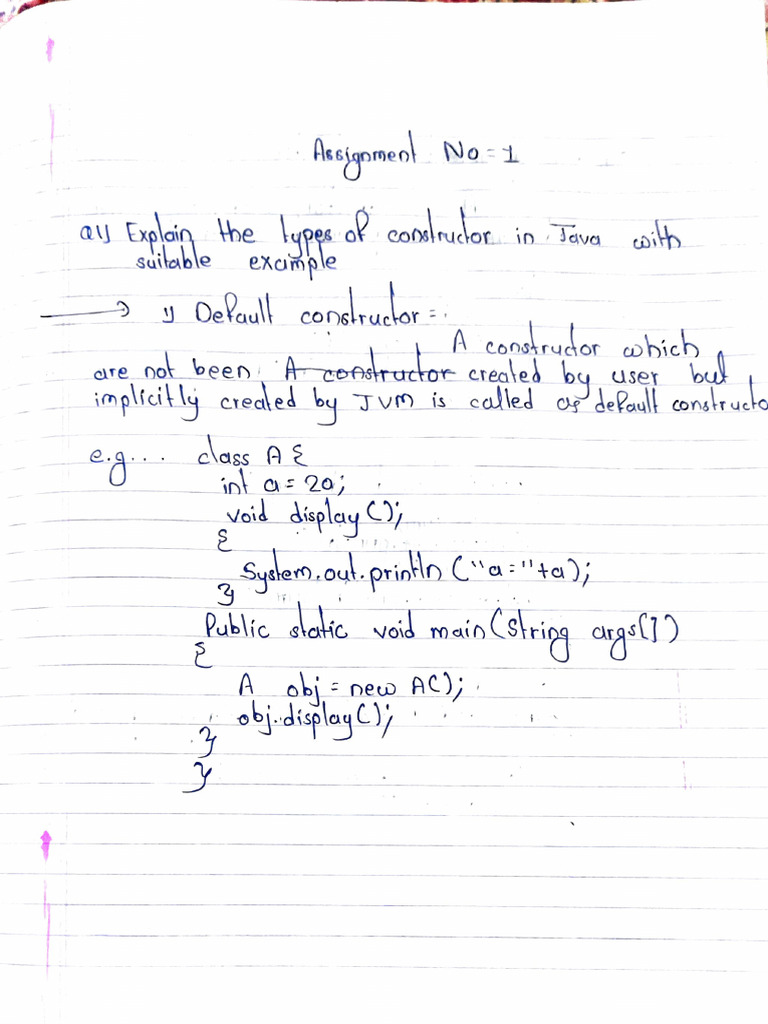 Assignment No = 1
Q1) Explain the types of constructor in Java with
suitable example
→ 1) Default constructor =
A constructor which
are not been A constructor created by user but
implicitly created by JVM is called as default constructo
e.g... class A {
int a = 20;
void display();
{
System.out.println ("a="+a);
}
Public static void main(String args[])
{
A obj = new A();
obj.display();
}
}